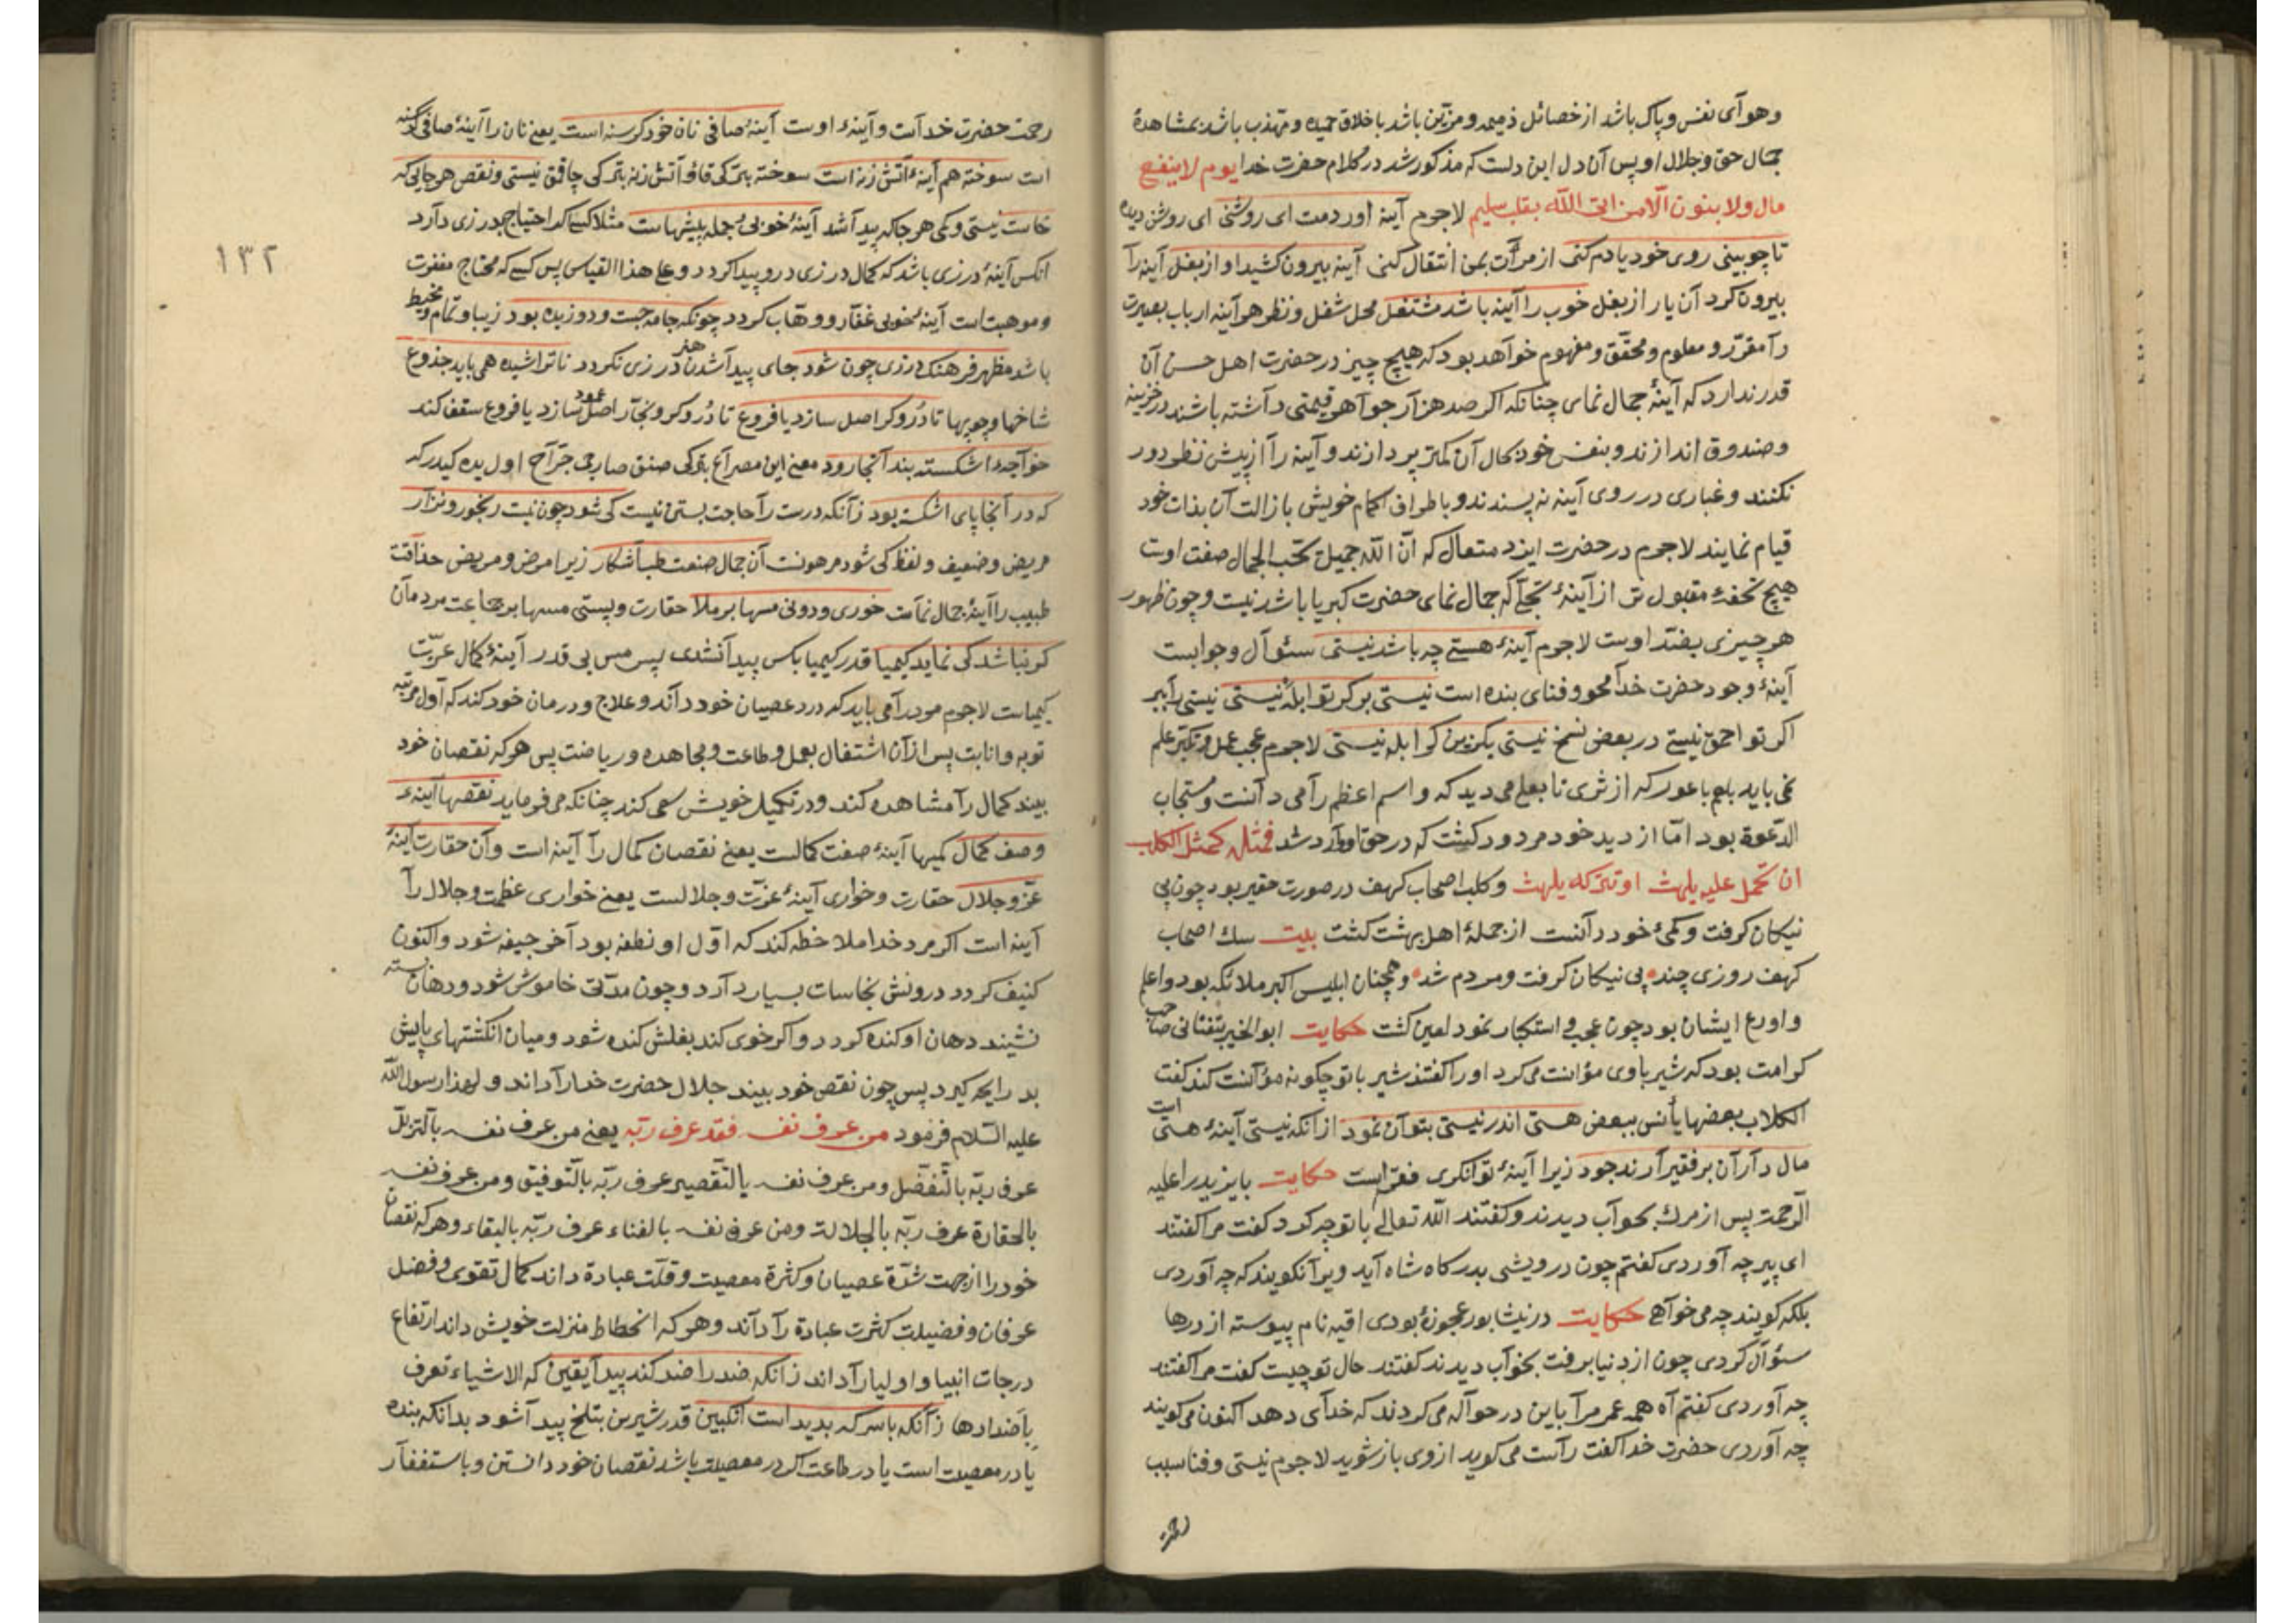 وهوای نفس وپاک باشد از خصائل ذمیمه ومزین باشد باخلاق حمیده ومهذب باشد بمشاهدۀ
جمال حق وجلال او پس آن دل این دلست که مذکور شد در کلام حضرت خدا یوم لا ینفع
مال ولا بنون الّا من اتی اللّه بقلب سلیم لاجرم آینه آوردمت ای روشنی ای روشن دیده
تا چو بینی روی خود یادم کنی از مرآت بمن انتقال کنی آینه بیرون کشید او از بغل آینه را
بیرون کرد آن یار از بغل خوب را آینه باشد مشتغل محل شغل ونظر هر آینه ارباب بصیرت
را مقرّر ومعلوم ومحقّق ومفهوم خواهد بود که هیچ چیز در حضرت اهل حسن آن
قدر ندارد که آینۀ جمال نمای چنانکه اکر صد هزار جواهر قیمتی داشته باشند در خزینه
وصندوق اندازند وبنفس خود بحال آن کمتر پردازند وآینه را از پیش نظر دور
نکنند وغباری در روی آینه نه پسندند وباطراف اکمام خویش بازالت آن بذات خود
قیام نمایند لاجرم در حضرت ایزد متعال که انّ اللّه جمیل یحبّ الجمال صفت اوست
هیچ تحفۀ مقبول تر از آینۀ تجلّی که جمال نمای حضرت کبریا باشد نیست وچون ظهور
هر چیزی بضدّ اوست لاجرم آینۀ هستی چه باشد نیستی سئوال وجوابست
آینۀ وجود حضرت خدا محو وفنای بنده است نیستی بر کر تو ابله نیستی نیستی را ببر
اکر تو احمق نیستی در بعض نسخ نیستی بکزین کر ابله نیستی لاجرم عجب عمل وتکبّر علم
نمی باید بلعم باعور که از ثری تا بعلی می دید که واسم اعظم را می دانست ومستجاب
الدّعوة بود امّا از دید خود مردود کشت که در حق او وارد شد فمثله کمثل الکلب
ان تحمل علیه یلهث او تترکه یلهث وکلب اصحاب کهف در صورت حقیر بود چون پی
نیکان کرفت وکمئ خود دانست از جملۀ اهل بهشت کشت بیت سک اصحاب
کهف روزی چند پی نیکان کرفت ومردم شد وهمچنان ابلیس اکبر ملائکه بود واعلم
واورع ایشان بود چون عجب واستکبار نمود لعین کشت حکایت ابو الخیر صاحب
کرامت بود که شیر باوی مؤانست می کرد اورا کفتند شیر باتو چکونه مؤانست کند کفت
الکلاب بعضها یأنس ببعض هستی اندر نیستی بتوان نمود از انکه نیستی آینۀ هستی است
مال داران بر فقیر آرند جود زیرا آینۀ توانکری فقر است حکایت بایزید را علیه
الرّحمة پس از مرك بخواب دیدند وکفتند اللّه تعالی باتو چه کرد کفت مرا کفتند
ای پیر چه آوردی کفتم چون درویشی بدرکاه شاه آید ویرا نکویند که چه آوردی
بلکه کویند چه می خواهی حکایت در نیشابور عجوزۀ بودی نام پیوسته از درها
سئوال کردی چون از دنیا برفت بخواب دیدند کفتند حال تو چیست کفت مرا کفتند
چه آوردی کفتم آه همه عمر مرا باین در حواله می کردند که خدای دهد اکنون می کویند
چه آوردی حضرت خدا کفت راست می کوید از وی باز شوید لاجرم نیستی وفنا سبب
رحمت
رحمت حضرت خداست وآینۀ اوست آینۀ صافی نان خود کرسنه است یعنی نان را آینۀ صافی کرسنه
است سوخته هم آینۀ آتش زنه است سوخته نیستی ونقص هر جایی که
خاست نیستی وکمی هر جا که پیدا شد آینۀ خوبی جمله پیشهاست مثلا کسی که احتیاج بدرزی دارد
انکس آینۀ درزی باشد که کمال درزی درو پیدا کردد وعلی هذا القیاس پس کسی که محتاج مغفرت
وموهبت است آینۀ خوبی غفّار ووهّاب کردد چونکه جامه جست ودوزیده بود زیبا وتمام ومخیط
باشد مظهر فرهنک درزی چون شود جای پیدا شدن هنر درزی نکردد ناتراشیده همی باید جذوع
شاخها وچوبها تا دروکر اصل سازد یا فروع تا دُروکر ونجّار اصل عمود سازد یا فروع سقف کند
خواجه اشکسته بند آنجا رود معنی این مصراع جرّاح اول یره کیدر که
که در آنجا پای اشکسته بود زآنکه درست را حاجت بستن نیست کی شود چون نیست رنجور ونزار
مریض وضعیف ولفظ کی شود مرهونست آن جمال صنعت طب آشکار زیرا مرض ومریض حذاقت
طبیب را آینۀ جمال نماست خوری ودونی مسها بر ملا حقارت وپستی مسها بر جماعت مردمان
کر نباشد کی نماید کیمیا قدر کیمیا بکس پیدا نشدی پس مس بی قدر آینۀ کمال عزّت
کیمیاست لاجرم مرد را می باید که درد عصیان خود داند وعلاج ودرمان خود کند که اول مرتبه
توبه وانابت پس از آن اشتغال بعمل وطاعت ومجاهده وریاضت پس هر که نقصان خود
بیند کمال را مشاهده کند ودر تکمیل خویش سعی کند چنانکه می فرماید نقصها آینۀ
وصف کمال کمیها آینۀ صفت کمالست یعنی نقصان کمال را آینه است وآن حقارت آینۀ
عزّ وجلال حقارت وخواری آینۀ عزّت وجلالست یعنی خواری عظمت وجلال را
آینه است اکر مرد خدا ملاحظه کند که اوّل او نطفه بود آخر جیفه شود واکنون
کنیف کردد درونش نجاسات بسیار دارد وچون مدّتی خاموش شود ودهان بسته
نشیند دهان او کنده کردد واکر خوی کند بغلش کنده شود ومیان انکشتهای پایش
بد رایحه کیرد پس چون نقص خود بیند جلال حضرت خدا را داند ولهذا رسول اللّه
علیه السّلام فرمود من عرف نفسه فقد عرف ربّه یعنی من عرف نفسه بالتزلّل
عرف ربّه بالتّفضّل ومن عرف نفسه بالتّقصیر عرف ربّه بالتّوفیق ومن عرف نفسه
بالحقارة عرف ربّه بالجلالة ومن عرف نفسه بالفناء عرف ربّه بالبقاء وهر که نقصان
خود را از جهت شدّة عصیان وکثرة معصیت وقلّت عبادة داند کمال تقوی وفضل
عرفان وفضیلت کثرت عبادة را داند وهر که انحطاط منزلت خویش داند ارتفاع
درجات انبیا واولیا را داند زانکه ضد را ضد کند پیدا یقین که الاشیاء تعرف
باضدادها زآنکه باسرکه بدید است انکبین قدر شیرین بتلخ پیدا شود بدانکه بنده
یا در معصیت است یا در طاعت اکر در معصیت باشد نقصان خود دانستن وباستغفار
١٣٢